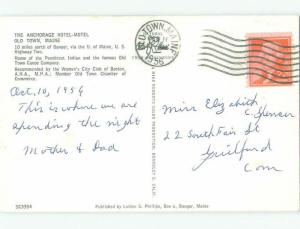 THE ANCHORAGE HOTEL-MOTEL
OLD TOWN, MAINE
10 miles north of Bangor, via the U. of Maine, U. S.
Highway Two.
Home of the Penobscot Indian and the famous Old
Town Canoe
Recommended by the Women's City Club of Boston,
A.H.A., M.P.A.; Member Old Town Chamber of
Commerce.
OLD TOWN, MAINE
1956
Oct, 10, 1956
This is where we are
spending the night
Mother & Dad
Miss Elizabeth
C. Spencer
22 South Fair St
Guilford
Conn
SC3954
Published by Luther S. Phillips, Box 6, Bangor, Maine